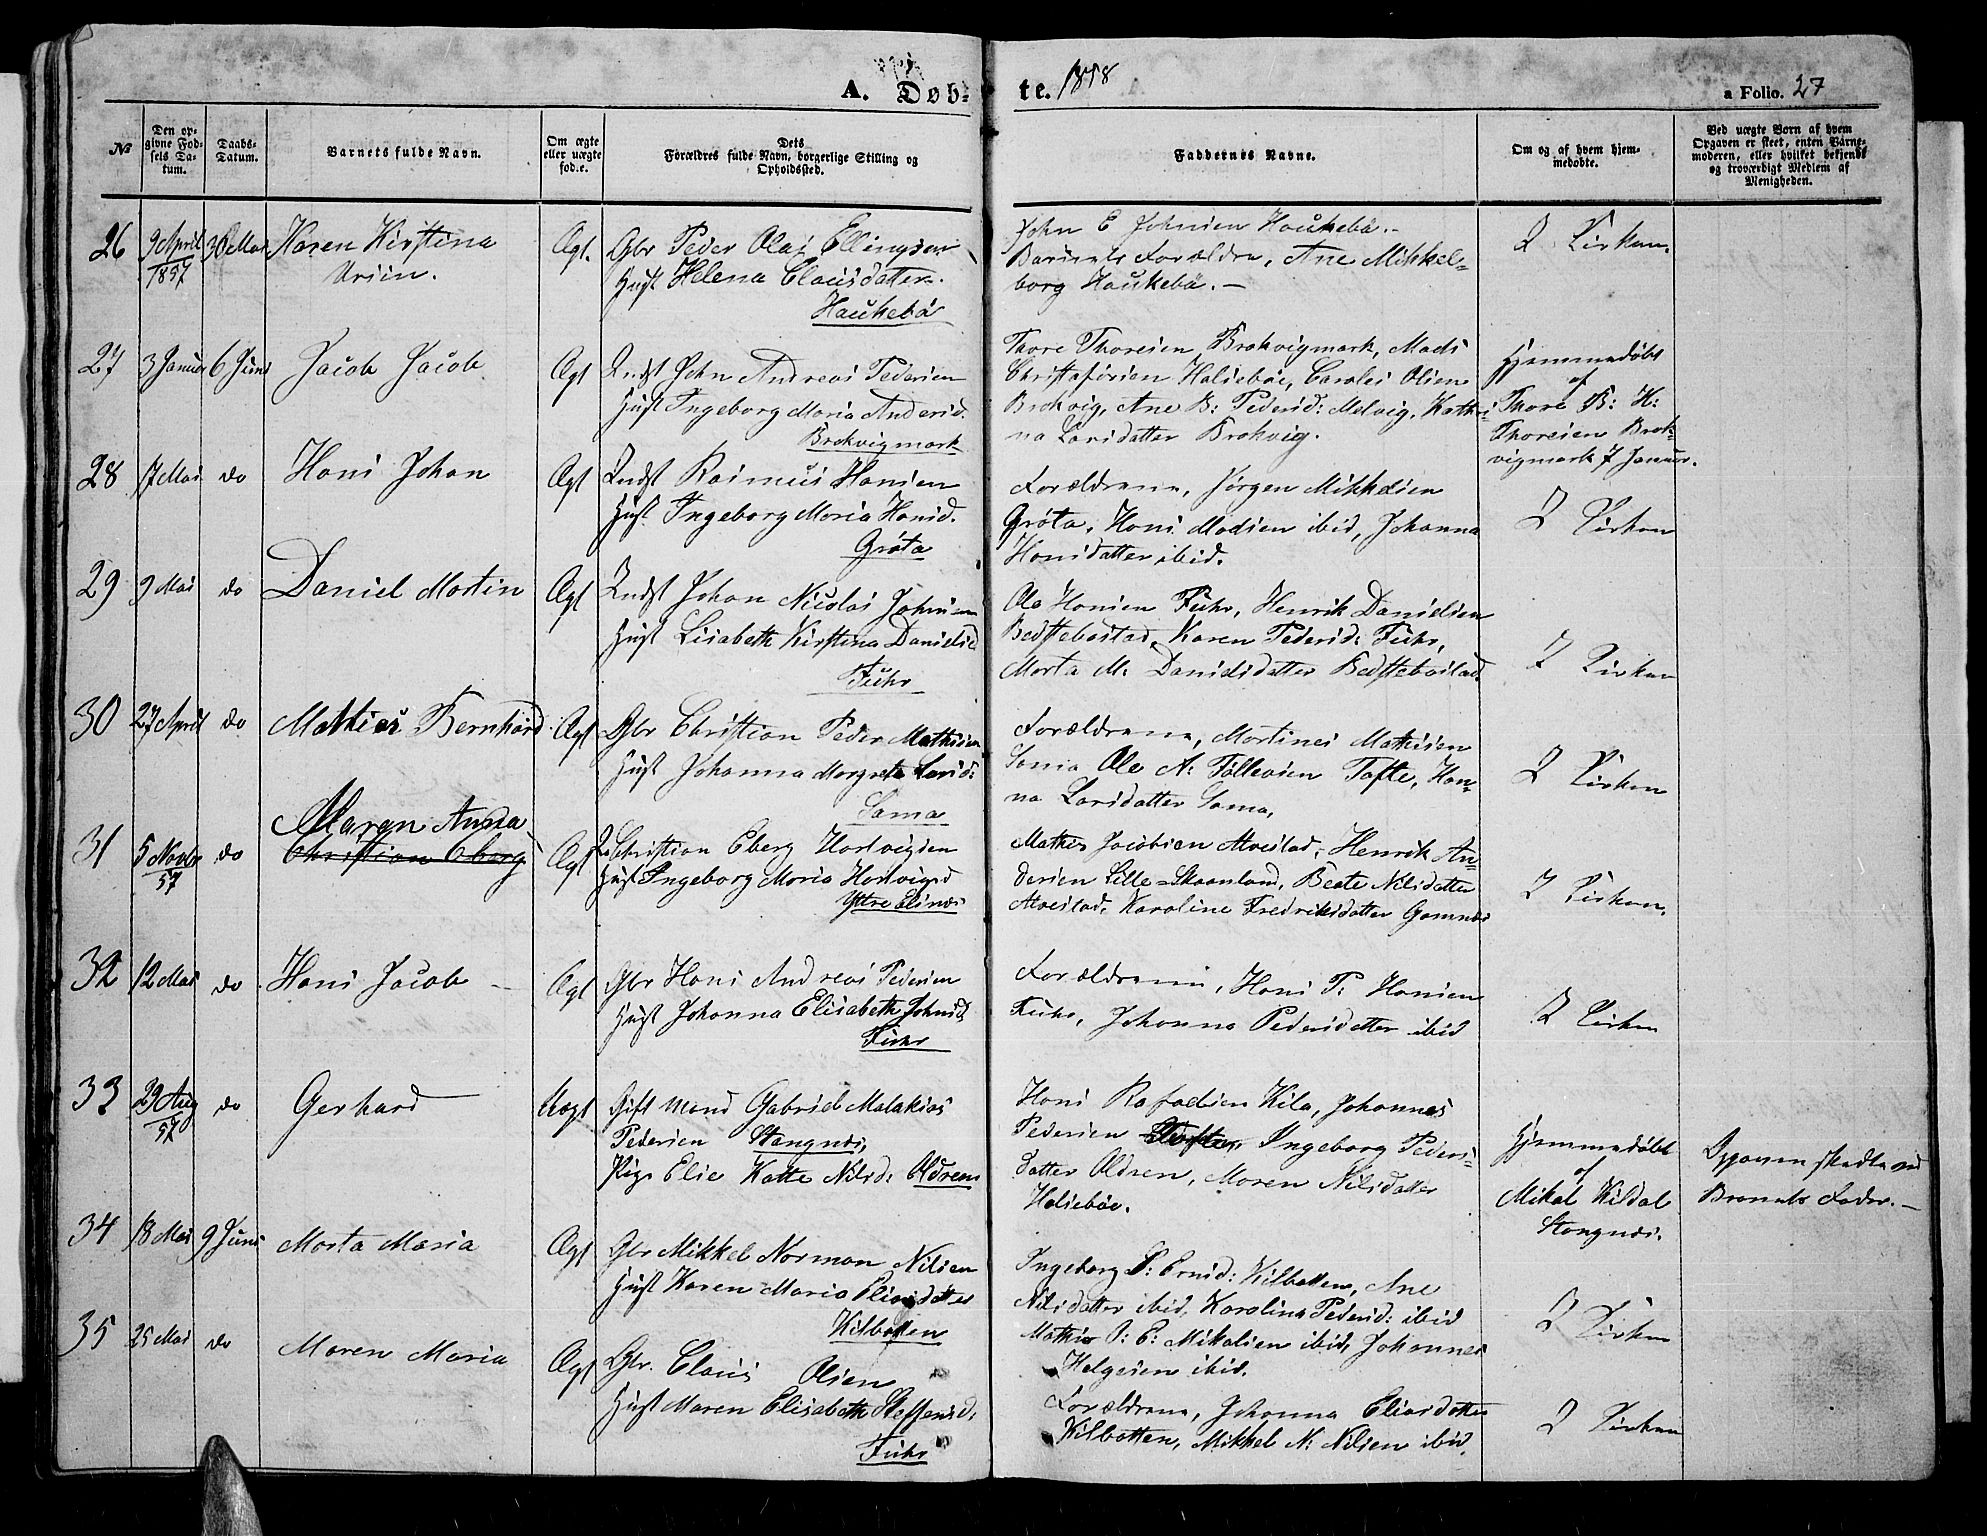 A. Døb-
te. 1858
a Folio. 27
№
Den op-
givne Fød-
sels Da-
tum.
Daabs-
Datum.
Barnets fulde Navn.
Om ægte
eller uægte
fød.e.
Dets
Forældres fulde Navn, borgerlige Stilling og
Opholdssted.
Faddernes Navne.
Om og af hvem hjem-
medøbte.
Ved uægte Børn af hvem
Opgaven er skeet, enten Barne-
moderen, eller hvilket bekjendt
og troværdigt Medlem af
Menigheden.
26 9 April 1857 30 Mai Karen Kirstina
Ægt. Gbr Peder Olai Ellingsen
Hust Helena Clausdatter.
Haukebø
John E Johnsen Haukebø.
Barnets Forældre, Ane Mikkels-
borg Haukebø. —
I Kirken.
27 3 Januar 6 Juni Jacob Jacob
Ægt Indst John Andreas Pedersen
Hust Ingeborg Maria Andersd.
Brokvigmark
Thore Thoresen Brokvigmark, Mads
Christofersen Halsebøe, Carolus Olsen
Brokvig, Ane B: Pedersd: Melvig, Kathri-
na Larsdatter Brokvig.
Hjemmedøbt
af
Thore B: H:
Thoresen Brok-
vigmark 7 Januar.
28 17 Mai do Hans Johan
Ægt Indst Rasmus Hansen
Hust Ingeborg Maria Hansd.
Grøta
Forældrene, Jørgen Mikkelsen
Grøta, Hans Madsen ibid, Johanna
Hansdatter ibid.
I Kirken
29 9 Mai do Daniel Martin
Ægt Indst Johan Nicolai Johnsen
Hust Lisabeth Kirstina Danielsd
Fuhr
Ole Hansen Fuhr, Henrik Danielsen
Bedstebostad, Karen Pedersd: Fuhr,
Marta M: Danielsdatter Bedstebostad.
I Kirken
30 27 April do Mathias Bernhard
Ægt Gbr Christian Peder Mathisen
Hust Johanna Margreta Larsd:
Sama
Forældrene, Martines Mathisen
Sama Ole A: Tollevsen Tofte, Han-
na Larsdatter Sama,
I Kirken
Maren Anna
31 5 Novbr 57 do Christian Eberg
Ægt Christian Eberg Hartvigsen
Hust Ingeborg Maria Hartvigsd
Yttre Elsnes
Mathis Jacobsen Alvestad, Henrik An-
dersen Lille-Skaanland, Beate Nilsdatter
Alvestad, Karoline Fredriksdatter Gamnæs
I Kirken.
32 12 Mai do Hans Jacob —
Ægt Gbr Hans Andreas Pedersen
Hust Johanna Elisabeth Johnsd,
Fuhr
Forældrene, Hans P: Hansen
Fuhr, Johanna Pedersdatter ibid
I Kirken
33 29 Aug 57 do Gerhard
Uægt Gift Mand Gabriel Malakias
Pedersen Stangnæs,
Pige Elie Katte Nilsd: Aldren
Hans Rafaelsen Kila, Johannes
Pedersen Ingeborg Peders-
datter Oldren, Maren Nilsdatter
Halsebøe.
Hjemmedøbt
af
Mikal Kildal
Stangnæs.
Opgaven skedte ved
Barnets Fader. —
34 18 Mai 9 Juni Marta Maria
Ægt Gbr Mikkel Norman Nilsen
Hust Karen Maria Eliasdatter
Kilbotten
Ingeborg P: Ernsd: Kilbotten, Ane
Nilsdatter ibid, Karolina Pedersd: ibid
Mathis J: E: Mikalsen ibid, Johannes
Helgesen ibid.
I Kirken
35 25 Mai do Maren Maria
Ægt Gbr. Claus Olsen
Hust Maren Elisabeth Steffensd.
Fuhr
Forældrene, Johanna Eliasdatter
Kilbotten, Mikkel N: Nilsen ibid.
I Kirken